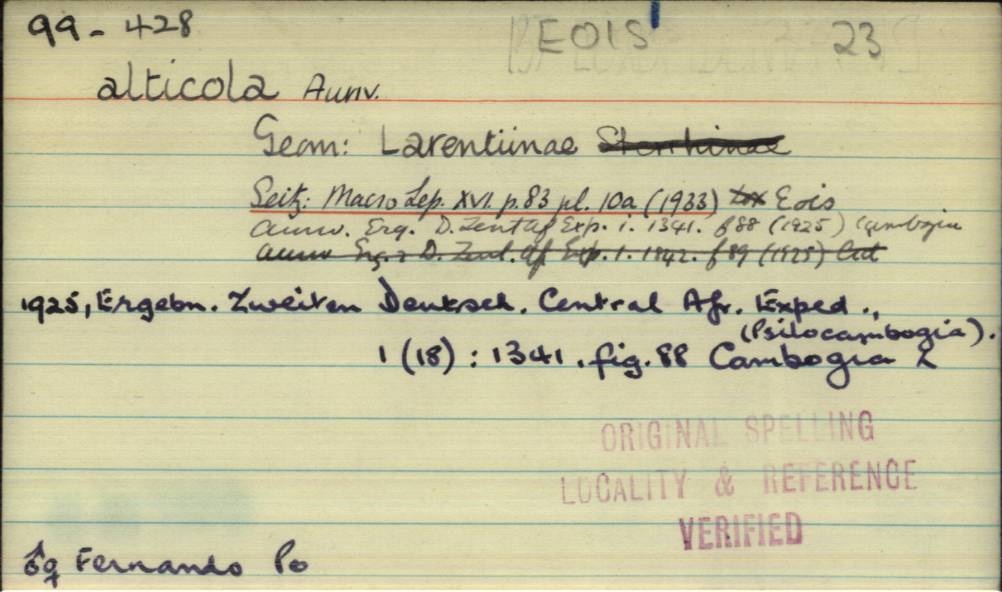 99-428 EOIS 23
alticola Auriv.
Geom: Larentiinae Sterrhinae
Seitz: Macro Lep. XVI. p.83 pl. 10a (1933) Eois
Auriv. Erg. D. Zent Af Exp. 1. 1341. f 88 (1925) Cambogia
Auriv Erg. D. Zent. Af Exp. 1. 1342. f 89 (1925)
1925, Ergebn. Zweiten Deutsch. Central Afr. Exped.,
(Psilocambogia).
1 (18) : 1341. fig. 88 Cambogia
ORIGINAL SPELLING
LOCALITY & REFERENCE
VERIFIED
♂♀ Fernando Po